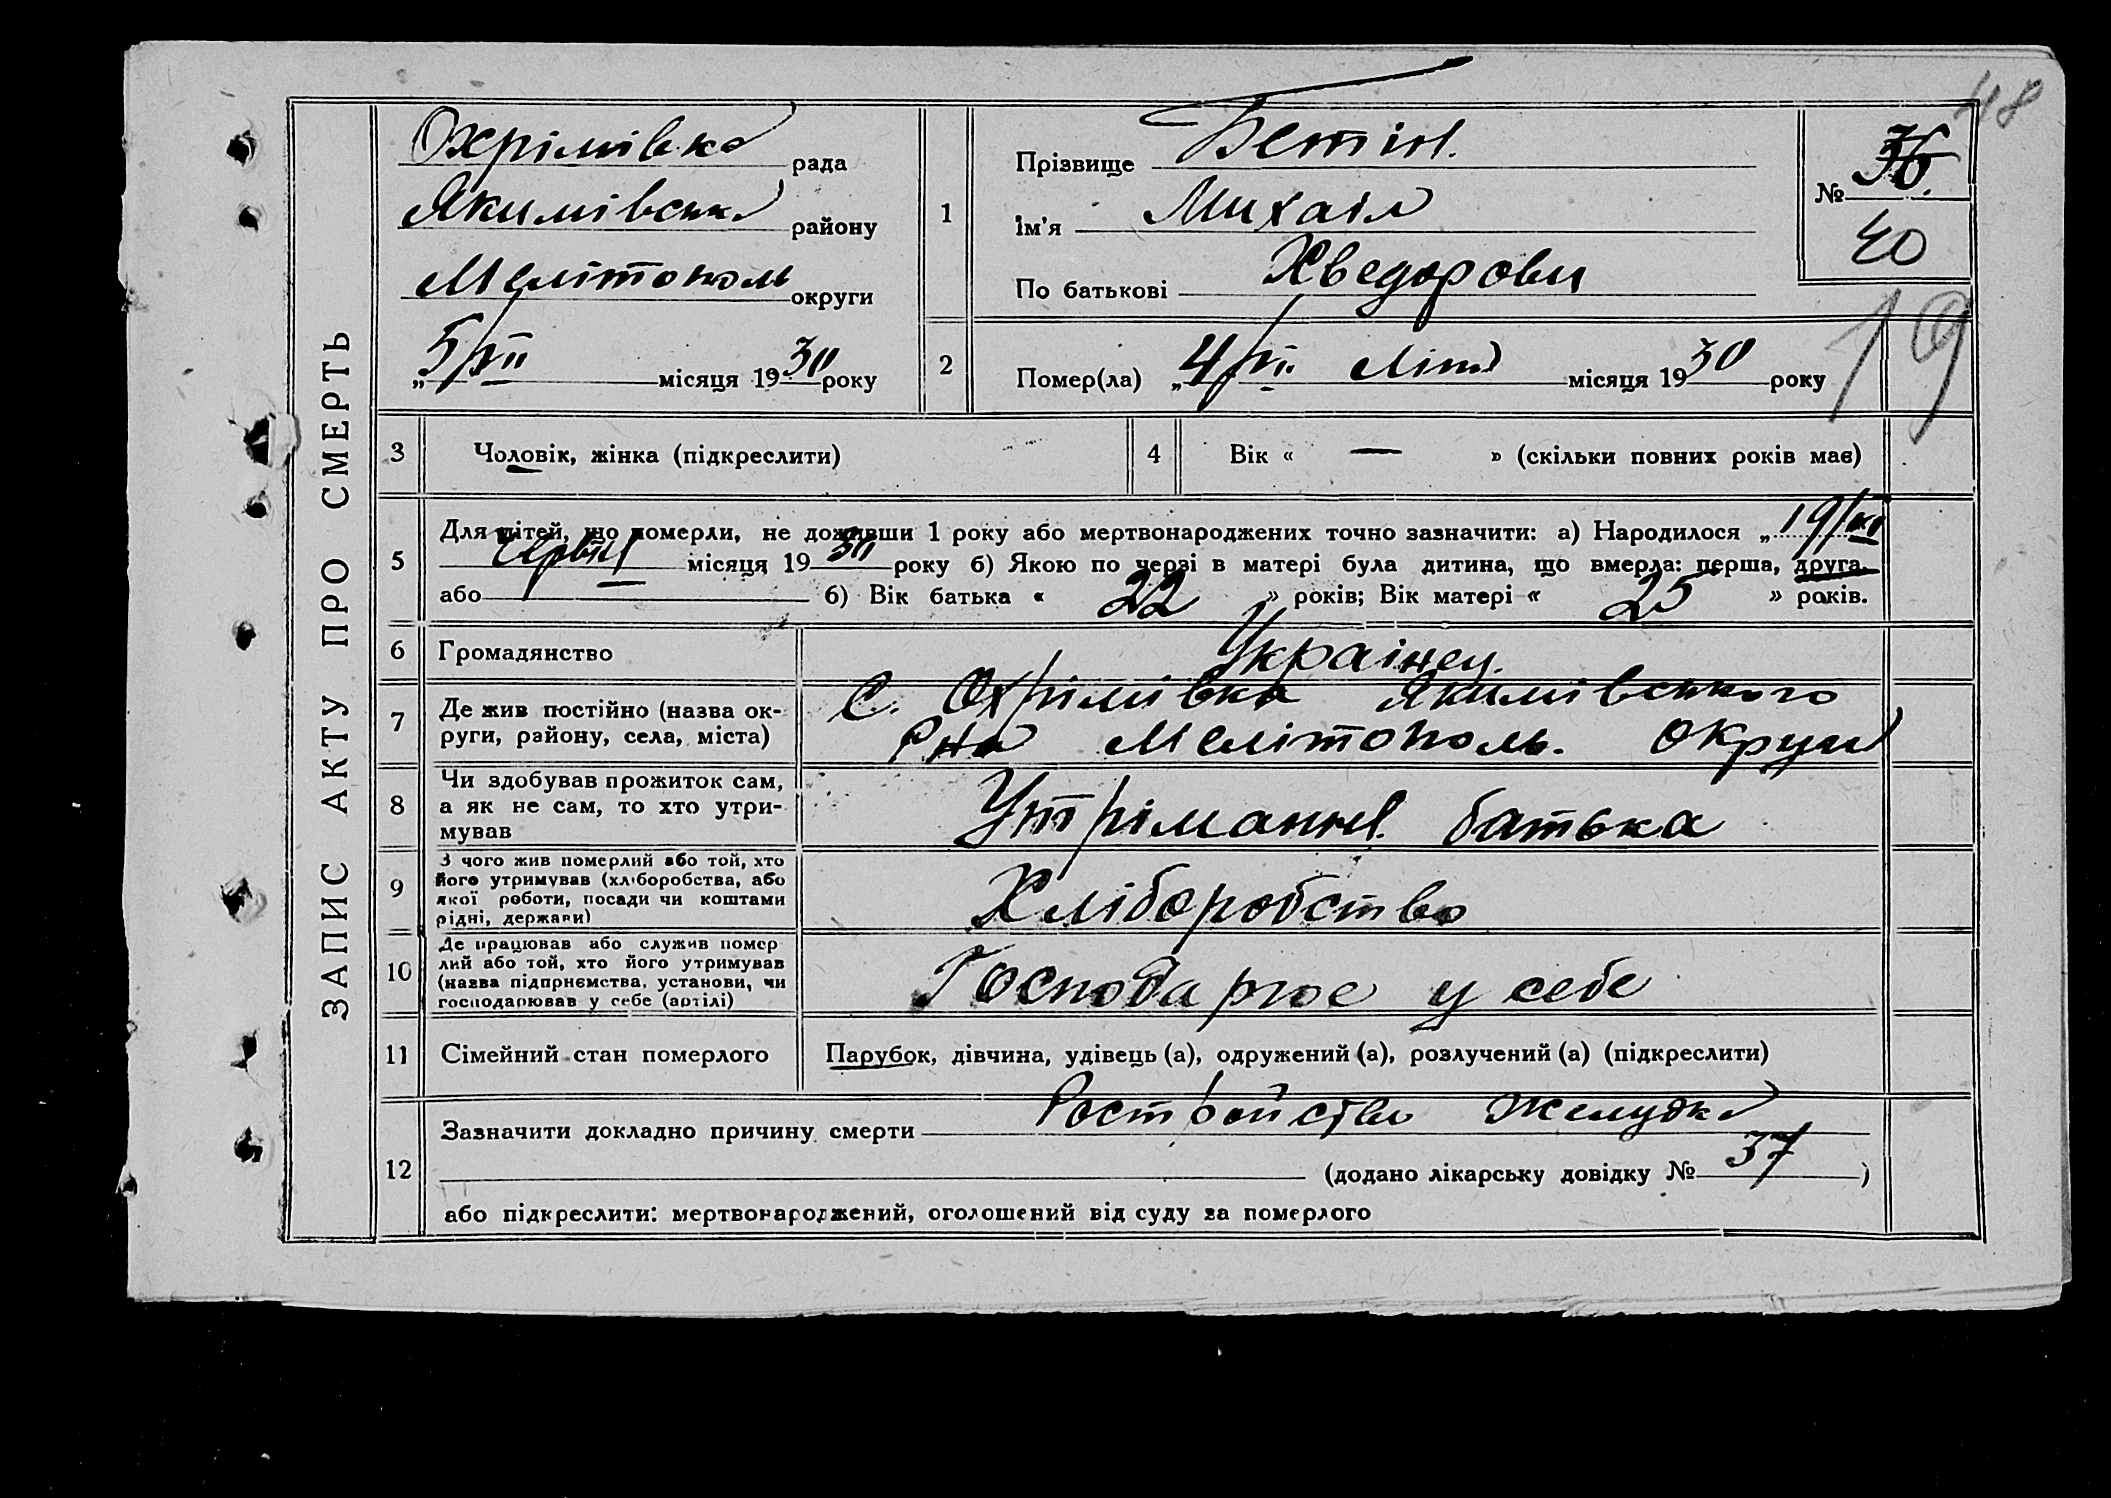 48
ЗАПИС АКТУ ПРО СМЕРТЬ
Охрімівка рада
Якимівськ району
Мелітополь округи
„ 5/VII місяця 1930 року
1
Прізвище Бетін.
Ім'я Михаіл
По батькові Хведорови
№ 36.
40
19
2
Помер(ла) „ 4/VII Літд місяця 1930 року
3
Чоловік, жінка (підкреслити)
4
Вік « — » (скільки повних років має)
5
Для дітей, що померли, не доживши 1 року або мертвонароджених точно зазначити: а) Народилося „ 19/
місяця 1930 року б) Якою по черзі в матері була дитина, що вмерла: перша, друга.
або б) Вік батька « 22 » років; Вік матері « 25 » років.
6
Громадянство
Украінец.
7
Де жив постійно (назва ок-
руги, району, села, міста)
С. Охрімівка Якимівського
Рна Мелітополь. округи
8
Чи здобував прожиток сам,
а як не сам, то хто утри-
мував
Утріманні батька
9
З чого жив померлий або той, хто
його утримував (хліборобства, або
якої роботи, посади чи коштами
рідні, держави)
Хліборобство
10
Де працював або служив помер
лий або той, хто його утримував
(назва підприємства, установи, чи
господарював у себе (артілі)
Господарює у себе
11
Сімейний стан померлого
Парубок, дівчина, удівець (а), одружений (а), розлучений (а) (підкреслити)
12
Зазначити докладно причину смертиРостройство желудка
(додано лікарську довідку № 37)
або підкреслити: мертвонароджений, оголошений від суду за померлого